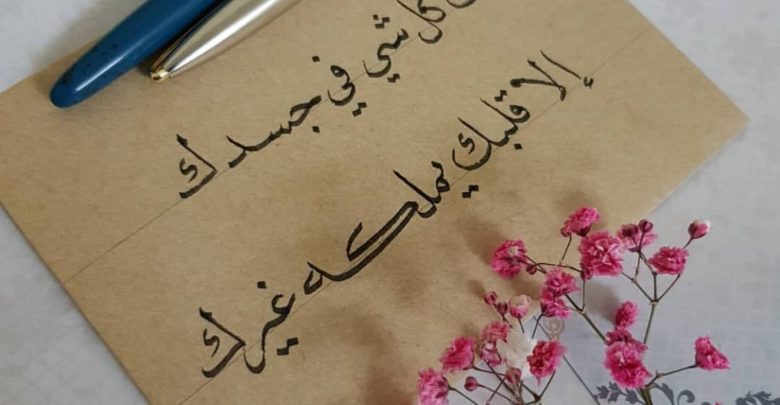 كل شي في جسدك
إلا قلبك يملكه غيرك